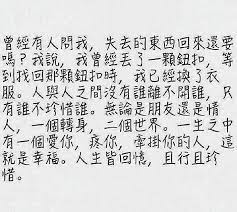 曾經有人問我，失去的東西回來還要
嗎？我說，我曾經丟了一顆鈕扣，等
到找回那顆鈕扣時，我已經換了衣
服。人與人之間沒有誰離不開誰，只
有誰不珍惜誰。無論是朋友還是情
人，一個轉身，二個世界。一生之中
有一個愛你，疼你，牽掛你的人，這
就是幸福。人生皆回憶，且行且珍
惜。